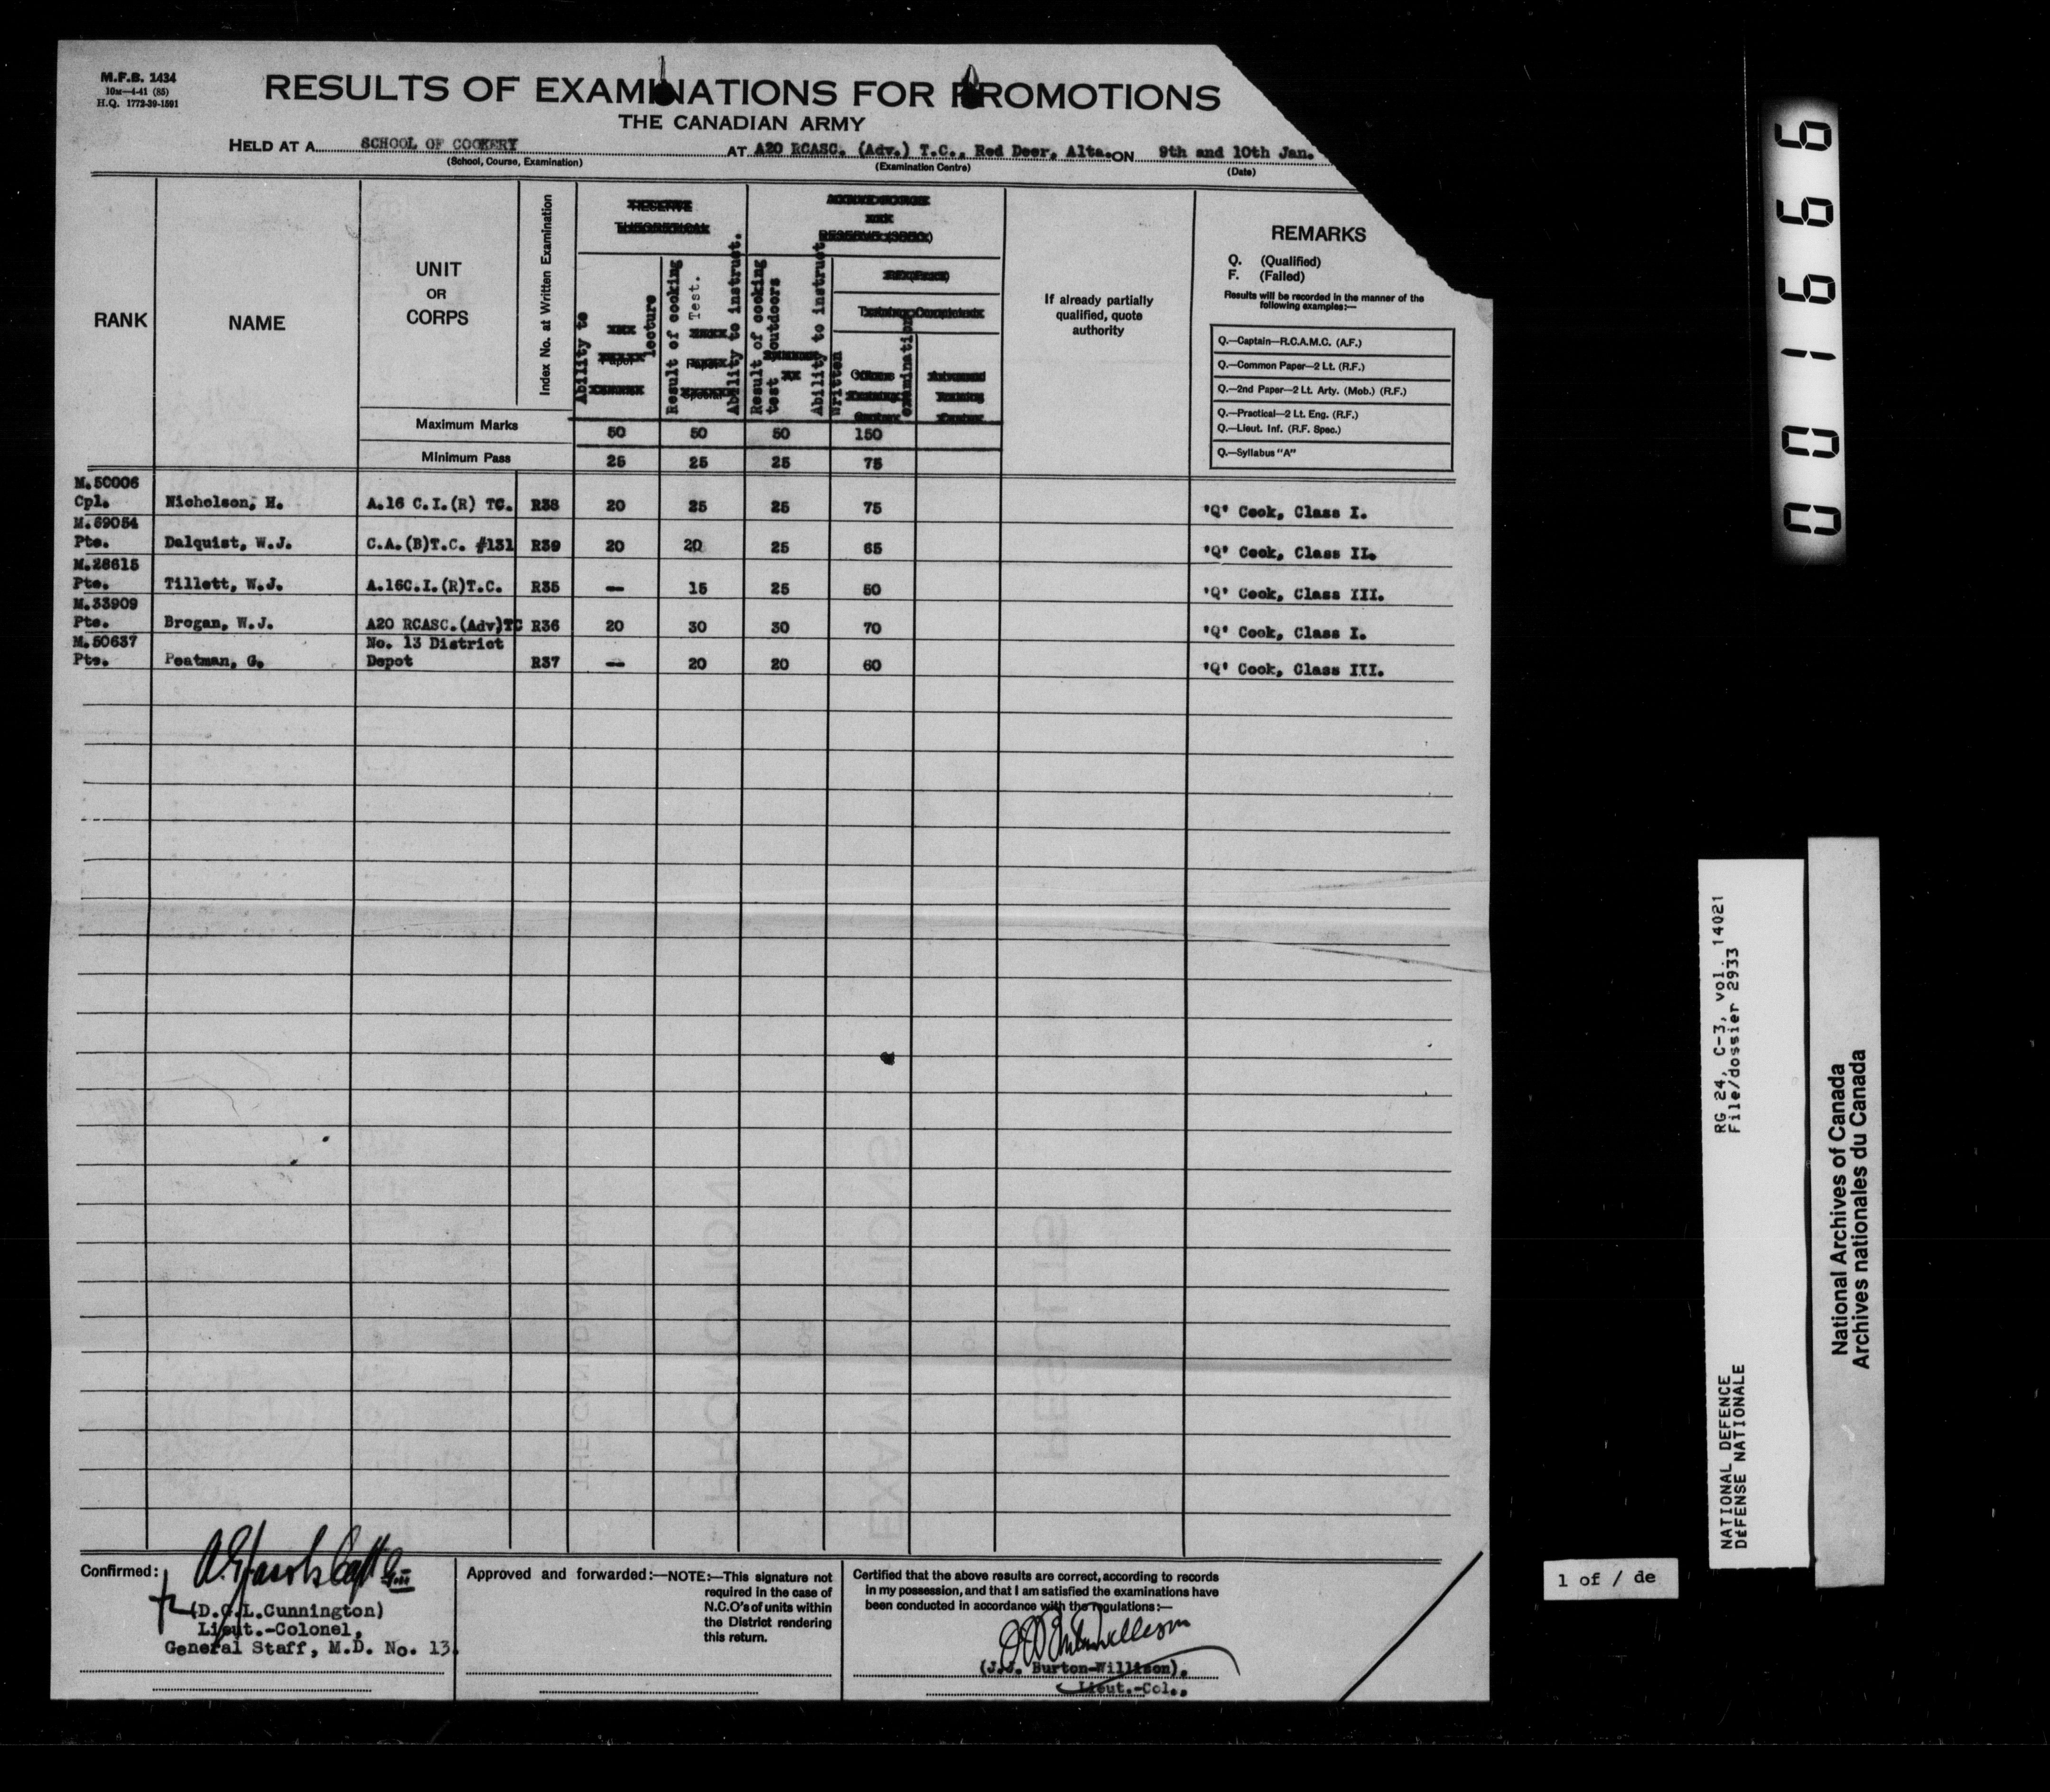 M.F.B. 1434
10M—4-41 (85)
H.Q. 1772-39-1591
RESULTS OF EXAMINATIONS FOR PROMOTIONS
THE CANADIAN ARMY
HELD AT A SCHOOL OF COOKERY AT A20 RCASC. (Adv.) T.C., Red Deer, Alta. ON 9th and 10th Jan.
(School, Course, Examination) (Examination Centre) (Date)
RANK
NAME
UNIT
OR
CORPS
Index No. at Written Examination
Ability to lecture
Result of cooking Test.
Ability to instruct.
Result of cooking test outdoors
Ability to instruct
Written examination
If already partially
qualified, quote
authority
REMARKS
Q. (Qualified)
F. (Failed)
Results will be recorded in the manner of the
following examples:—
Q.—Captain—R.C.A.M.C. (A.F.)
Q.—Common Paper—2 Lt. (R.F.)
Q.—2nd Paper—2 Lt. Arty. (Mob.) (R.F.)
Q.—Practical—2 Lt. Eng. (R.F.)
Q.—Lieut. Inf. (R.F. Spec.)
Q.—Syllabus "A"
Maximum Marks 50 50 50 150
Minimum Pass 25 25 25 75
M.50006
Cpl. Nicholson, H. A.16 C.I.(R) TC. R38 20 25 25 75 'Q' Cook, Class I.
M.69054
Pte. Dalquist, W.J. C.A.(B)T.C. #131 R39 20 20 25 65 'Q' Cook, Class II.
M.28615
Pte. Tillett, W.J. A.16C.I.(R)T.C. R35 — 15 25 50 'Q' Cook, Class III.
M.33909
Pte. Brogan, W.J. A20 RCASC.(Adv)TC R36 20 30 30 70 'Q' Cook, Class I.
M.50637 No. 13 District
Pte. Peatman, G. Depot R37 — 20 20 60 'Q' Cook, Class III.
Confirmed:
(D.G.L.Cunnington)
Lieut.-Colonel,
General Staff, M.D. No. 13.
Approved and forwarded:—NOTE:—This signature not
required in the case of
N.C.O's of units within
the District rendering
this return.
Certified that the above results are correct, according to records
in my possession, and that I am satisfied the examinations have
been conducted in accordance with the regulations:—
(J.J. Burton-Willison),
Lieut.-Col.,
001666
RG 24, C-3, vol. 14021
File/dossier 2933
NATIONAL DEFENCE
DÉFENSE NATIONALE
National Archives of Canada
Archives nationales du Canada
1 of / de